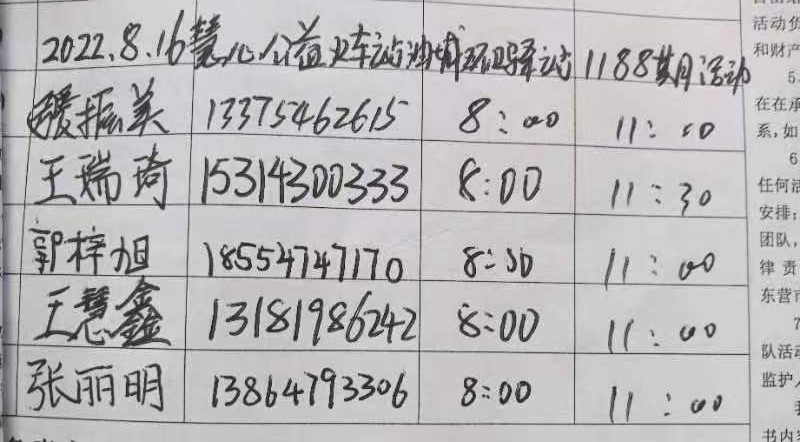 2022.8.16慧心公益火车站油城环卫驿站1188期活动
振美 13375462615 8:00 11:00
王瑞琦 15314300333 8:00 11:30
郭梓旭 18554747170 8:30 11:00
王慧鑫 13181986242 8:00 11:00
张丽明 13864793306 8:00 11:00
活动负
和财产
5
在在承
系,如
6
任何活
安排;
团队,
律责
东营市
7
队活动
监护人
书内容